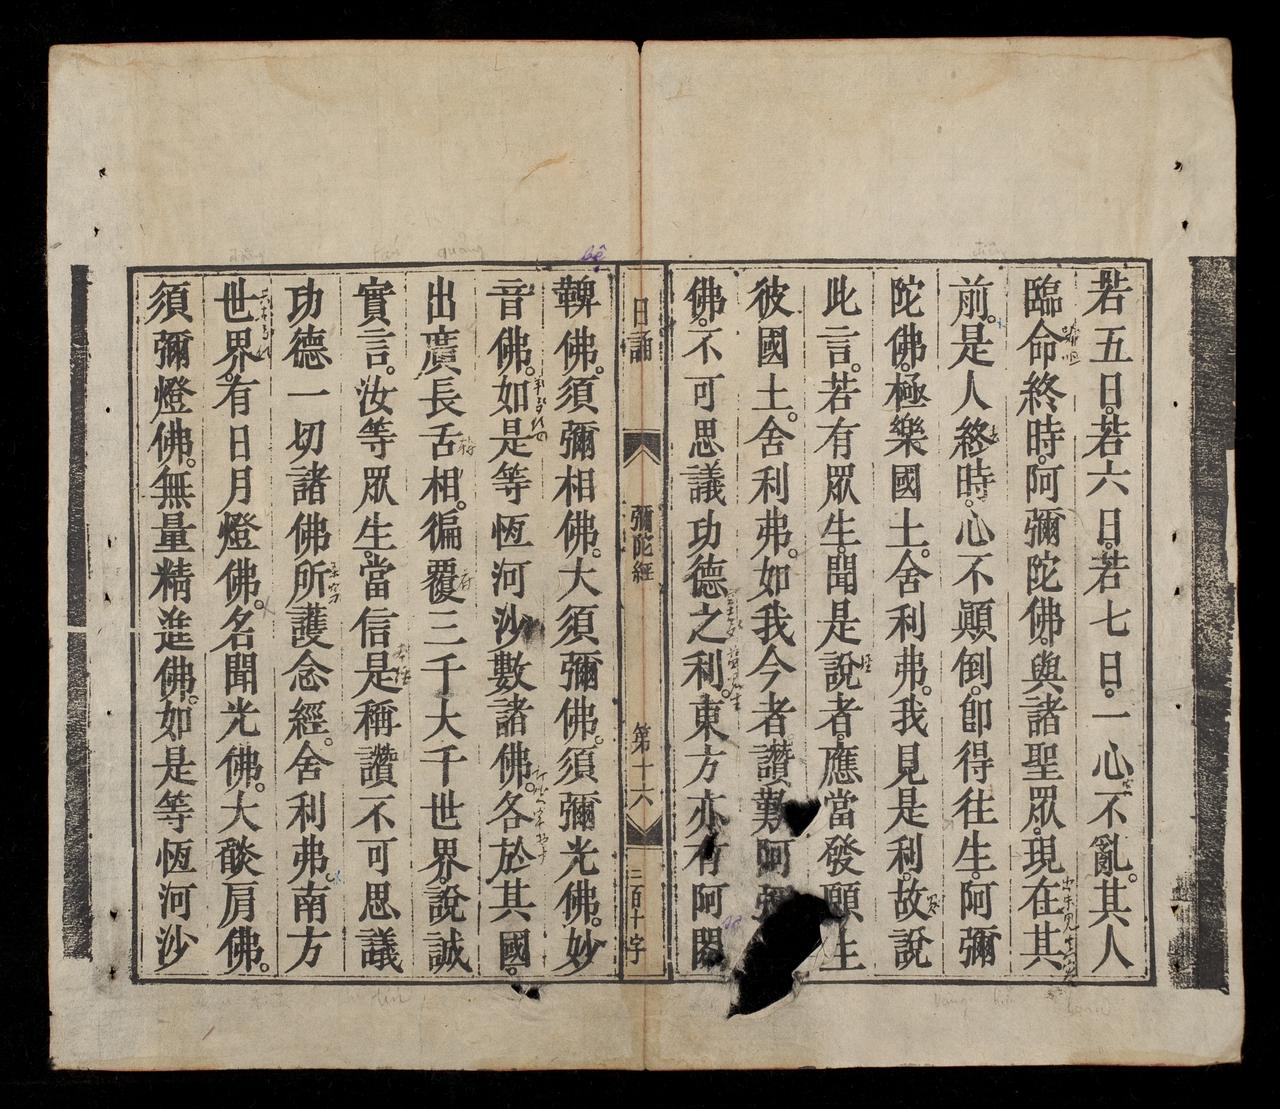 若五日。若六日。若七日。一心不亂。其人
臨命終時。阿彌陀佛。與諸聖眾。現在其
前。是人終時。心不顛倒。卽得往生。阿彌
陀佛。極樂國土。舍利弗。我見是利。故說
此言。若有眾生。聞是說者。應當發願生
彼國土。舍利弗。如我今者。讚歎阿彌
佛。不可思議功德之利。東方亦有阿閦
日誦
彌陀經
第十六
三百十字
鞞佛。須彌相佛。大須彌佛。須彌光佛。妙
音佛。如是等恆河沙數諸佛。各於其國。
出廣長舌相。徧覆三千大千世界。說誠
實言。汝等眾生。當信是稱讚不可思議
功德一切諸佛所護念經。舍利弗。南方
世界。有日月燈佛。名聞光佛。大燄肩佛。
須彌燈佛。無量精進佛。如是等恆河沙
bệ